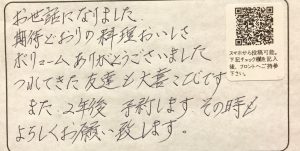 お世話になりました。
期待どおりの料理おいしさ
ボリュームありがとうございました
つれてきた友達も大喜こびです
また、2年後 予約します その時も
よろしくお願い致します。
スマホから投稿可能。
下記チェック欄を記入
後、フロントへご持参
下さい。